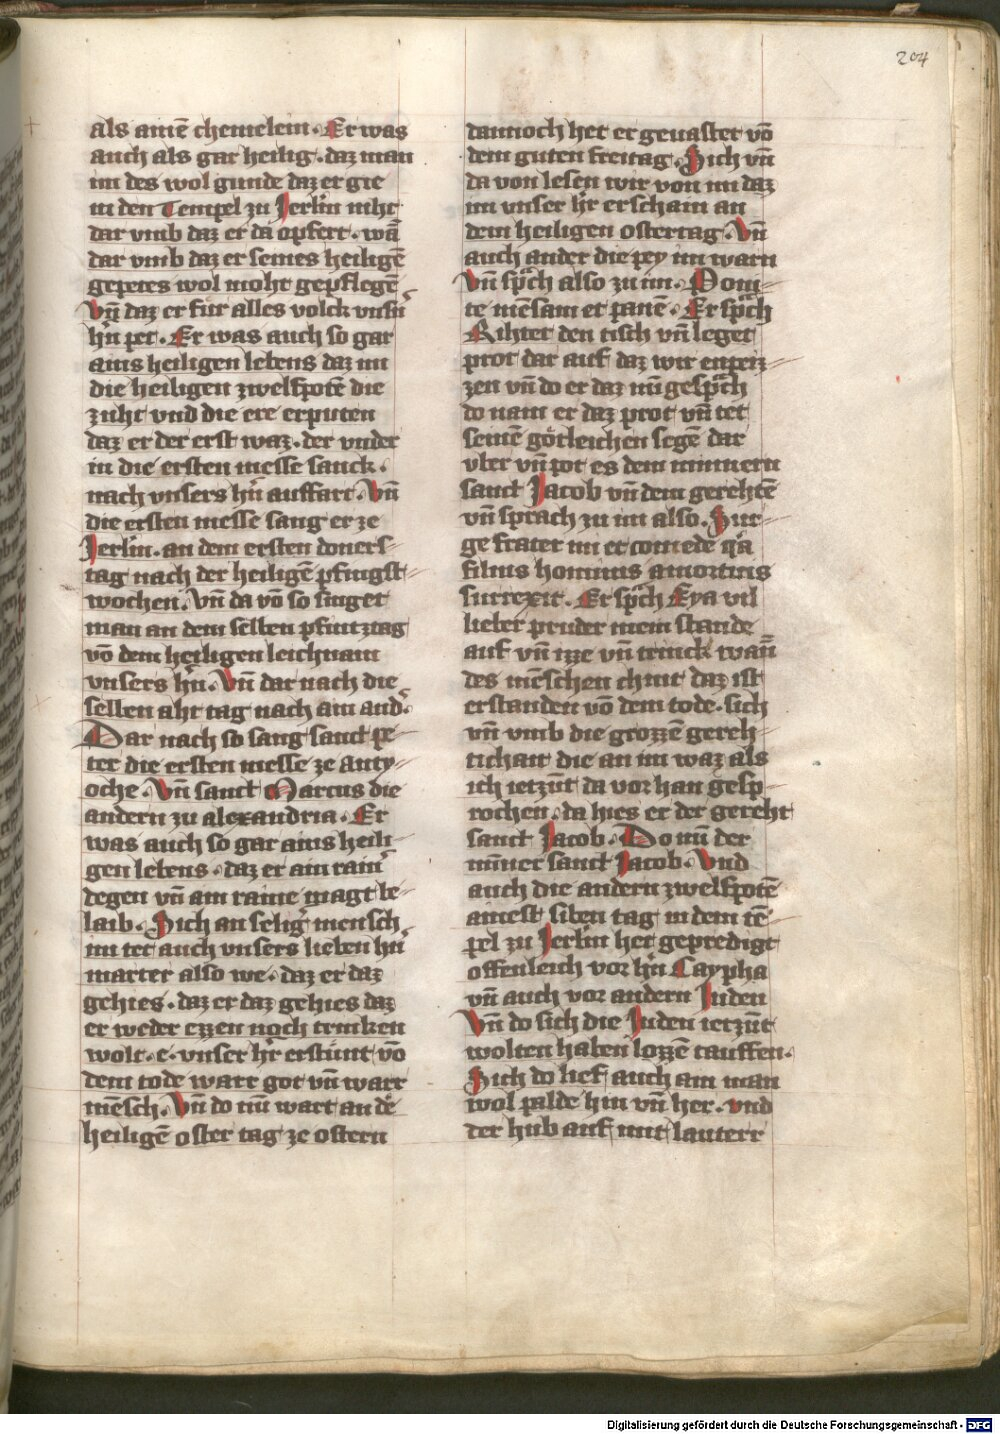 204
als ainē chemelein. Er was
auch als gar heilig. daz man
im des wol gunde daz er gie
in den Tempel zu Jerlm niht
dar vmb daz er da opfert. wā
dar vmb daz er seines heiligē
gepetes wol moht gepflegē
Vn̄ daz er für alles volck vnsn̄
hn̄ pet. Er was auch so gar
ains heiligen lebens daz im
die heiligen zwelfpotē die
zuht vnd die ere erputen
daz er der erst waz. der vnder
in die ersten messe sanck.
nach vnsers hn̄ auffart. Vn̄
die ersten messe sang er ze
Jerlm. an dem ersten doners-
tag nach der heiligē pfingst-
wochen. Vn̄ da vō so singet
man an dem selben pfintztag
vō dem heiligen leichnam
vnsers hn̄. Vn̄ dar nach die
selben aht tag nach ain and̄.
Dar nach so sang sanct pe-
ter die ersten messe ze Anty-
oche. Vn̄ sanct Marcus die
andern zu alexandria. Er
was auch so gar ains heili-
gen lebens. daz er ain rain̄
degen vn̄ ain raine magt be-
laib. Sich an seliḡ mensch
im tet auch vnsers lieben hn̄
marter also we. daz er daz
gehies. daz er daz gehies daz
er weder ezzen noch trinken
wolt. e. vnser hr̄ erstünt vō
dem tode warr got vn̄ warr
mēsch. Vn̄ do nu wart an dē
heiligē oster tag ze ostern
dannoch het er geuastet vō
dem guten freitag. Sich vn̄
da von lesen wir von im daz
im vnser hr̄ erschain an
dem heiligen ostertag. Vn̄
auch ander die pey im warn
Vn̄ sp̄ch also zu im. Poni-
te mēsam et panē. Er sp̄ch
Rihtet den tisch vn̄ leget
prot dar auf daz wir enpeiz-
zen vn̄ do er daz nu gesp̄ch
do nam er daz prot vn̄ tet
seinē götleichen segē dar
vber vn̄ pot es dem minnern
sanct Jacob vn̄ dem gerehtē
vn̄ sprach zu im also. Sur-
ge frater mi et comede q̄a
filius hominis amortuis
surrexit. Er sp̄ch Eya vil
lieber pruder mein stande
auf vn̄ izze vn̄ trinck wan̄
des mēschen chint daz ist
erstanden vō dem tode. sich
vn̄ vmb die grozzē gereh-
tichait die an im waz als
ich ietzūt da vor han gesp-
rochen. da hies er der gereht
sanct Jacob. Do nu der
minner sanct Jacob. Vnd
auch die andern zwelfpotē
ainest siben tag in dem tē-
pel zu Jerlm het gepredigt
offenleich vor hn̄ Caypha
vn̄ auch vor andern Juden
Vn̄ do sich die Juden ietzūt
wolten haben lozzē tauffen.
Sich do lief auch ain man
wol palde hin vn̄ her. vnd
der hub auf mit lauterr
Digitalisierung gefördert durch die Deutsche Forschungsgemeinschaft - DFG